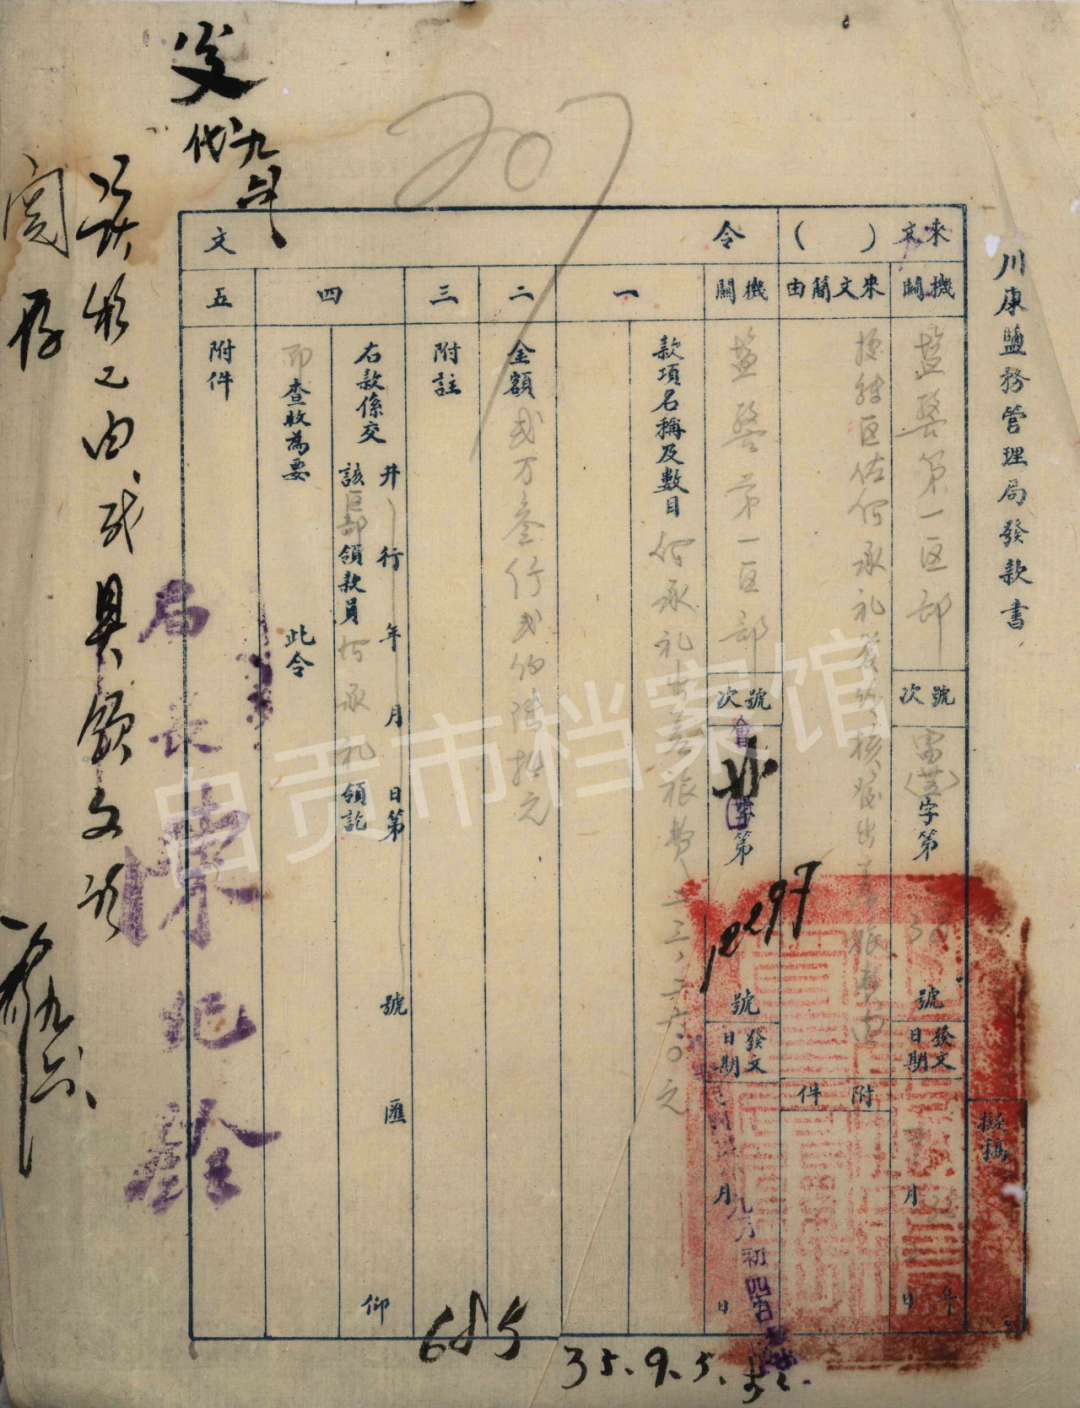 川康鹽務管理局發款書
擬稿
來文( )
令文
機關
鹽警第一区部
號次
字第
號
發文日期
年月日
來文簡由
據該区佐何承礼簽
核發出差旅費由
附件
機關
鹽警第一区部
號次
會
字第
12297
號
發文日期
月
日
九月初四日
一
款項名稱及數目
何承礼出差旅費二三、二六〇元
二
金額
弍万叁仟弍佰陸拾元
三
附註
四
井行年月日第號匯仰
右款係交
該区部領款員何承礼領訖
即查收為要
此令
五
附件
局長陳紀銓
具領
閱存
九六
發
代
207
685
35.9.5.
自贡市档案馆